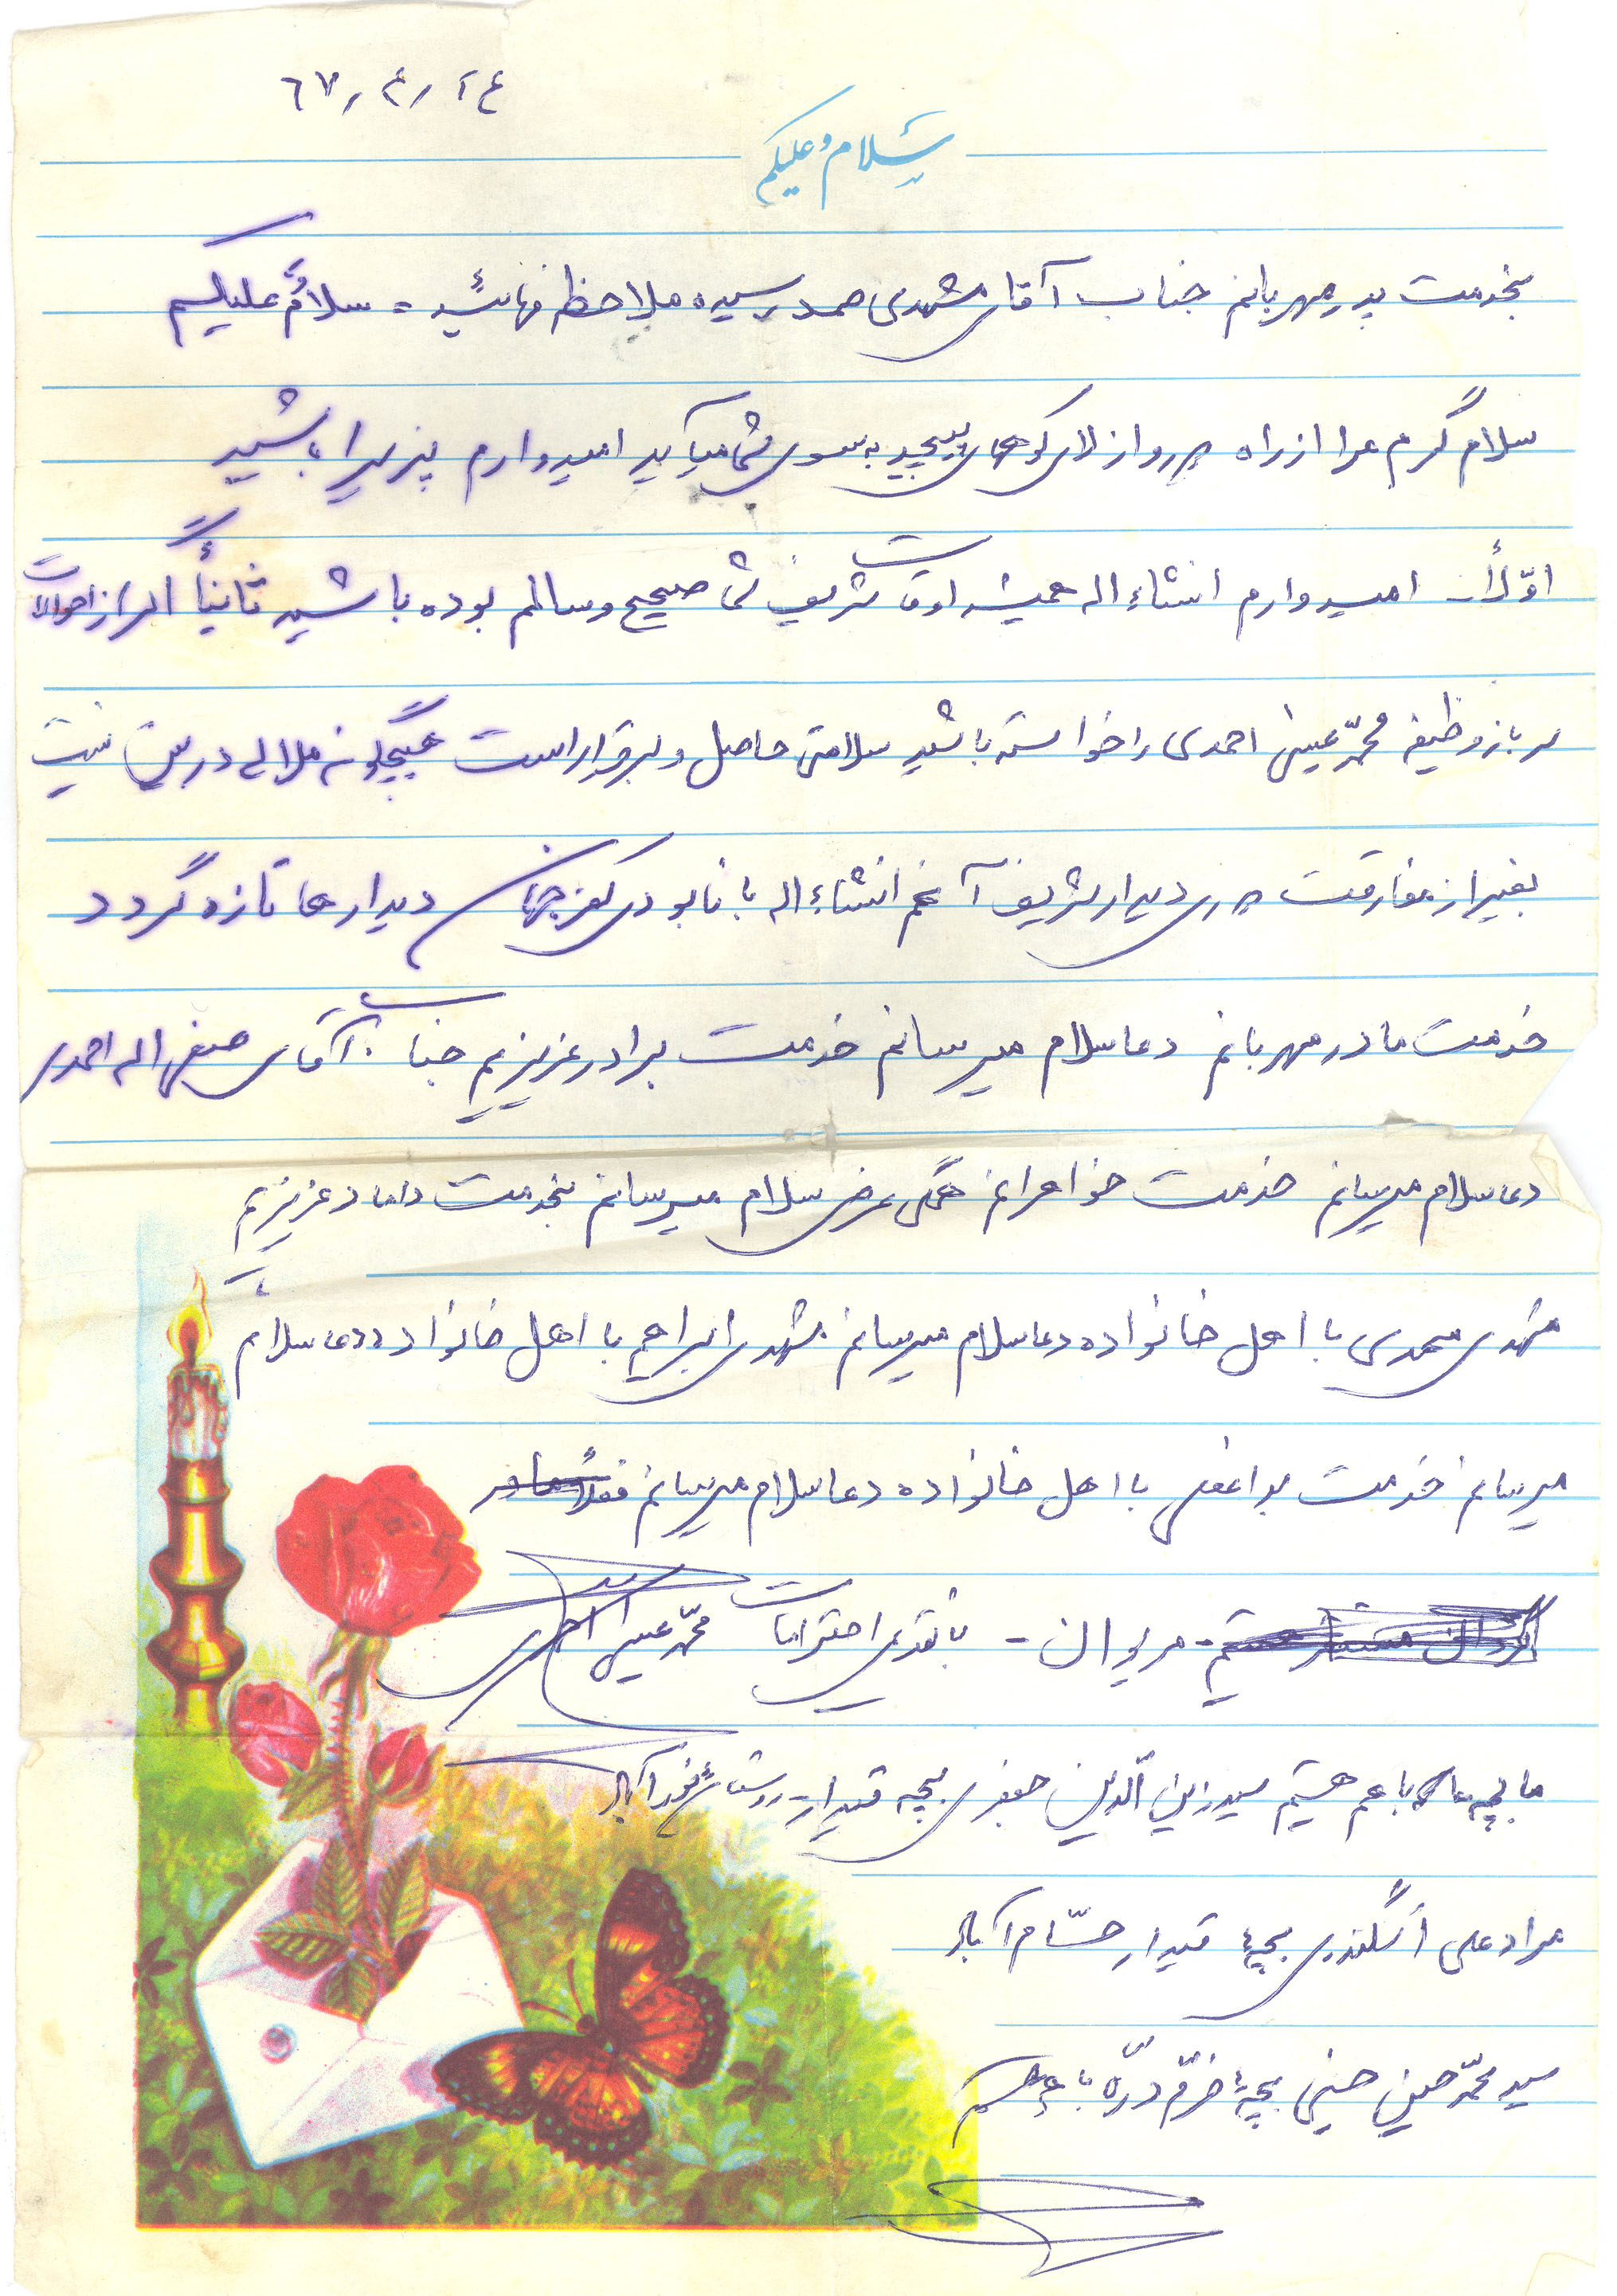 ٦٧٫٤٫٢٤
سلام و علیکم
بخدمت پدر مهربانم جناب آقای مشهدی صمد رسیده ملاحظه فرمائید = سلامٌ علیکم
سلام گرم مرا از راه دور و از لای کوههای پیچید به سوی شما میآید امیدوارم پذیرا باشید
اوّلاً امیدوارم انشاءاله همیشه اوقات شریف شما صحیح و سالم بوده باشید ثانیاً اگر از احوالات
سرباز وظیفه محمّد عیسی احمدی را خواسته باشید سلامتی حاصل و برقرار است هیچگونه ملالی درس نیست
بغیر از مفارقت دوری دیدار شریف آنهم انشاءاله با نابودی کفر جهان دیدارها تازه گردد
خدمت مادر مهربانم دعا سلام میرسانم خدمت برادر عزیزیم جناب آقای صیفی اله احمدی
دعا سلام میرسانم خدمت خواهرانم همگی عرض سلام میرسانم بخدمت داماد عزیزیم
مشهدی محمدی با اهل خانواده دعا سلام میرسانم مشهدی ابراهیم با اهل خانواده دعا سلام
میرسانم خدمت با اهل خانواده دعا سلام میرسانم فعلاً
مریوان - باتقدیم احترامات محمّد عیسی احمدی
ما بچه های با هم هستیم سید زین الّدین جعفری بچه قیدار روستای
مراد علی اسگندری بچهٔ قیدار حسّام آباد
سید محمّد حسین حسینی بچهٔ خرّم درّه با هستم